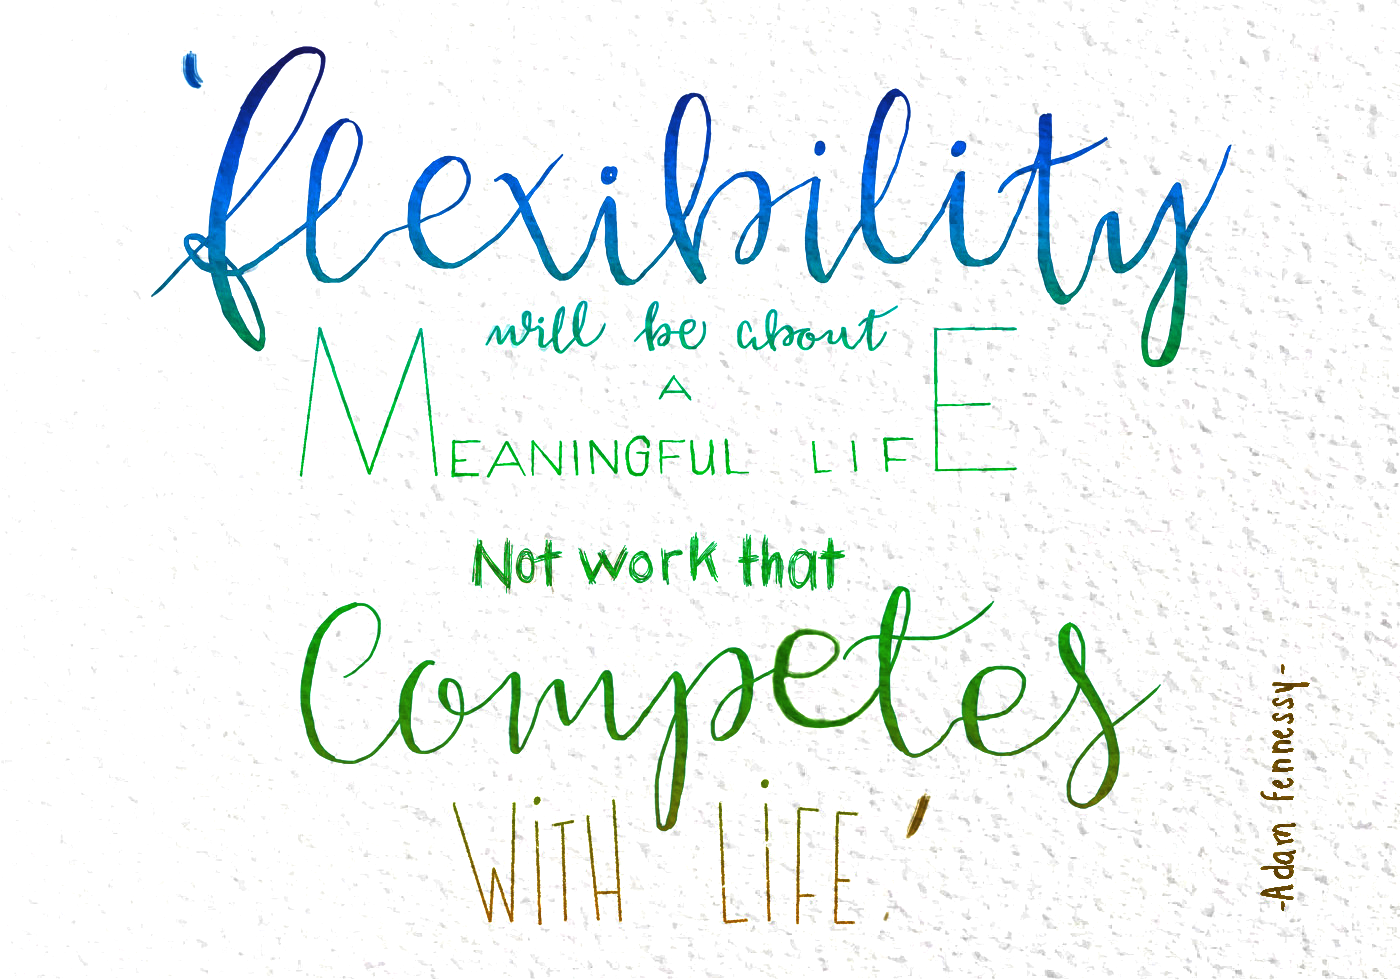 'flexibility
will be about
A
MEANINGFUL LIFE
Not work that
Competes
WiTH LiFE.'
-Adam Fennessy-